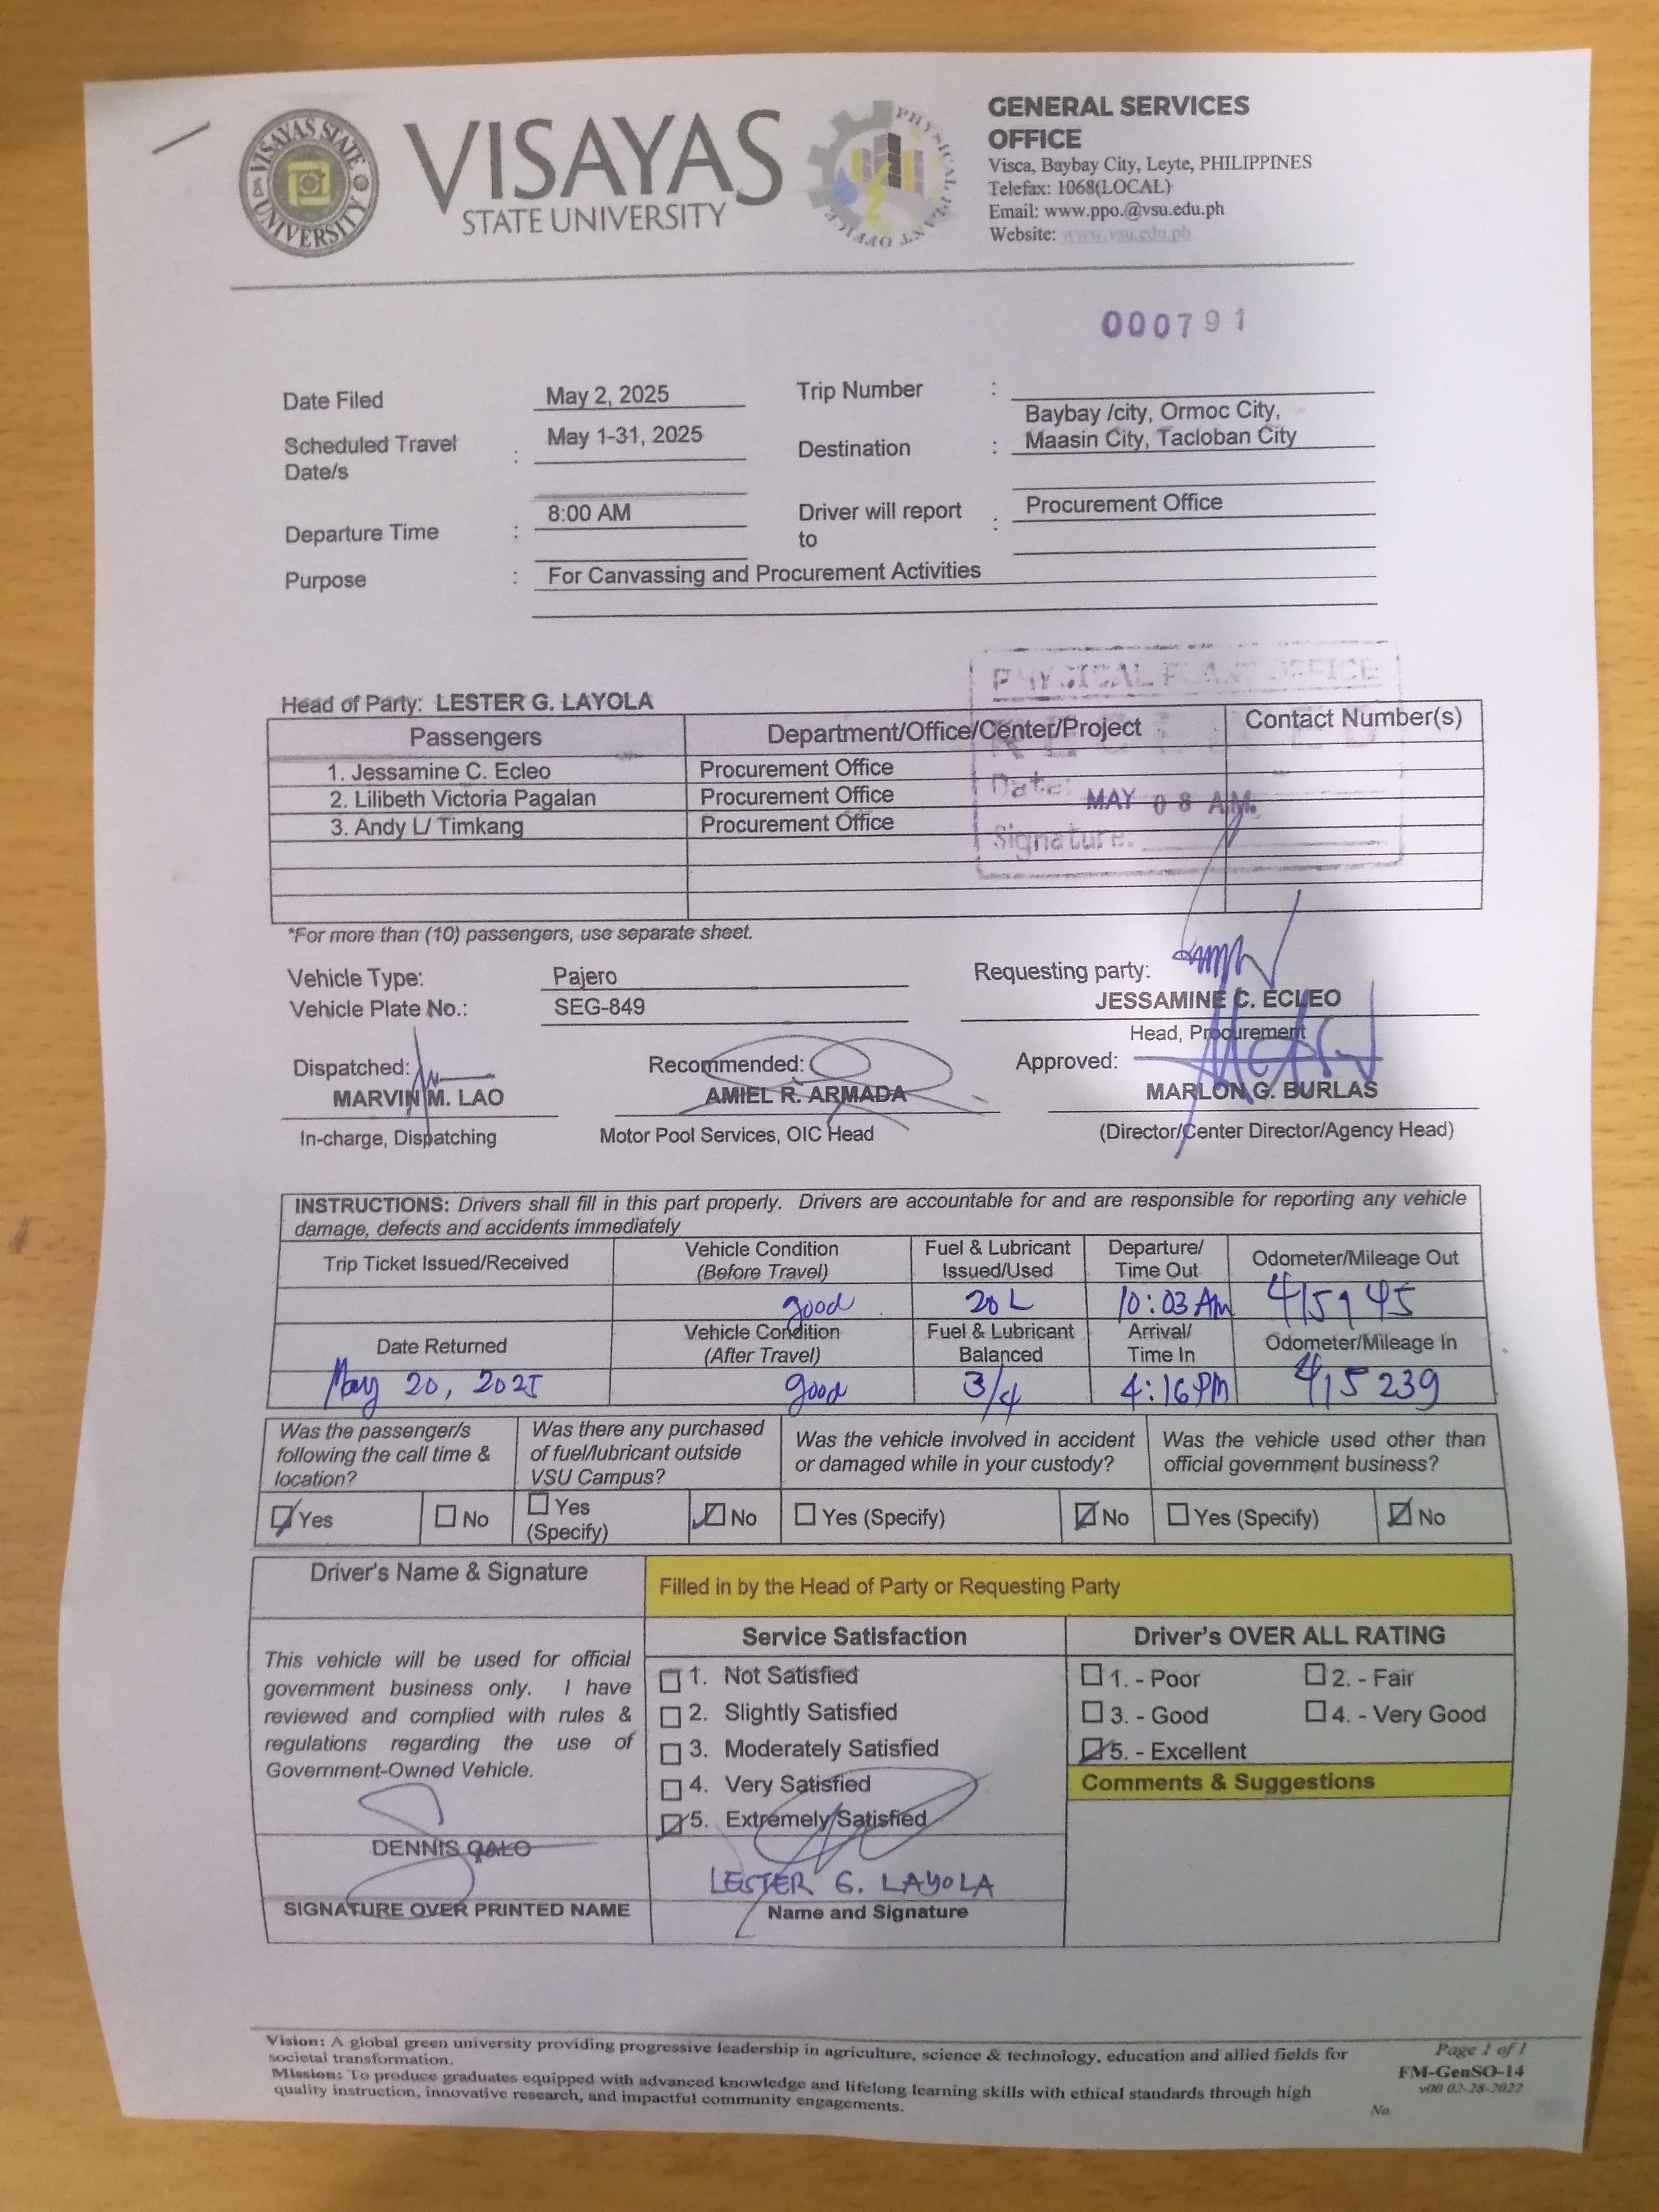 VISAYAS STATE UNIVERSITY
VISAYAS
STATE UNIVERSITY
PHYSICAL PLANT OFFICE
GENERAL SERVICES
OFFICE
Visca, Baybay City, Leyte, PHILIPPINES
Telefax: 1068(LOCAL)
Email: www.ppo.@vsu.edu.ph
Website: www.vsu.edu.ph
000791
Date Filed May 2, 2025 Trip Number :
Scheduled Travel Date/s : May 1-31, 2025 Destination : Baybay /city, Ormoc City,
Maasin City, Tacloban City
Departure Time : 8:00 AM Driver will report to : Procurement Office
Purpose : For Canvassing and Procurement Activities
PHYSICAL PLANT OFFICE
Date: MAY 08 A.M.
Signature:
Head of Party: LESTER G. LAYOLA
Passengers Department/Office/Center/Project Contact Number(s)
1. Jessamine C. Ecleo Procurement Office
2. Lilibeth Victoria Pagalan Procurement Office
3. Andy L/ Timkang Procurement Office
*For more than (10) passengers, use separate sheet.
Vehicle Type: Pajero Requesting party:
Vehicle Plate No.: SEG-849 JESSAMINE C. ECLEO
Head, Procurement
Dispatched: Recommended: Approved:
MARVIN M. LAO AMIEL R. ARMADA MARLON G. BURLAS
In-charge, Dispatching Motor Pool Services, OIC Head (Director/Center Director/Agency Head)
INSTRUCTIONS: Drivers shall fill in this part properly. Drivers are accountable for and are responsible for reporting any vehicle
damage, defects and accidents immediately
Trip Ticket Issued/Received Vehicle Condition (Before Travel) Fuel & Lubricant Issued/Used Departure/ Time Out Odometer/Mileage Out
good 20 L 10:03 Am 415145
Date Returned Vehicle Condition (After Travel) Fuel & Lubricant Balanced Arrival/ Time In Odometer/Mileage In
May 20, 2025 good 3/4 4:16 PM 415239
Was the passenger/s following the call time & location? Was there any purchased of fuel/lubricant outside VSU Campus? Was the vehicle involved in accident or damaged while in your custody? Was the vehicle used other than official government business?
Yes No Yes (Specify) No Yes (Specify) No Yes (Specify) No
Driver's Name & Signature Filled in by the Head of Party or Requesting Party
Service Satisfaction Driver's OVER ALL RATING
This vehicle will be used for official
government business only. I have
reviewed and complied with rules &
regulations regarding the use of
Government-Owned Vehicle.
1. Not Satisfied
2. Slightly Satisfied
3. Moderately Satisfied
4. Very Satisfied
5. Extremely Satisfied
1. - Poor 2. - Fair
3. - Good 4. - Very Good
5. - Excellent
Comments & Suggestions
DENNIS QALO
LESTER G. LAYOLA
SIGNATURE OVER PRINTED NAME Name and Signature
Vision: A global green university providing progressive leadership in agriculture, science & technology, education and allied fields for
societal transformation.
Mission: To produce graduates equipped with advanced knowledge and lifelong learning skills with ethical standards through high
quality instruction, innovative research, and impactful community engagements.
Page 1 of 1
FM-GenSO-14
v00 02-28-2022
No.